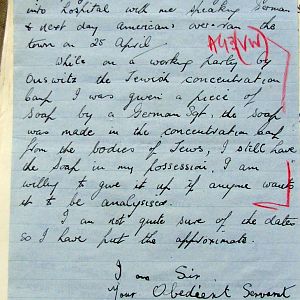 into hospital with me speaking German
& next day americans over-ran the
town on 25 April. A43(VW)
While on a working party by
Ouswitz the Jewish concentration
camp I was given a piece of
soap by a German Sgt. the soap
was made in the concentration camp
from the bodies of Jews, I still have
the soap in my possession. I am
willing to give it up if anyone wants
it to be analysised.
I am not quite sure of the dates
so I have put the approximate.
I am Sir
Your Obedient Servant